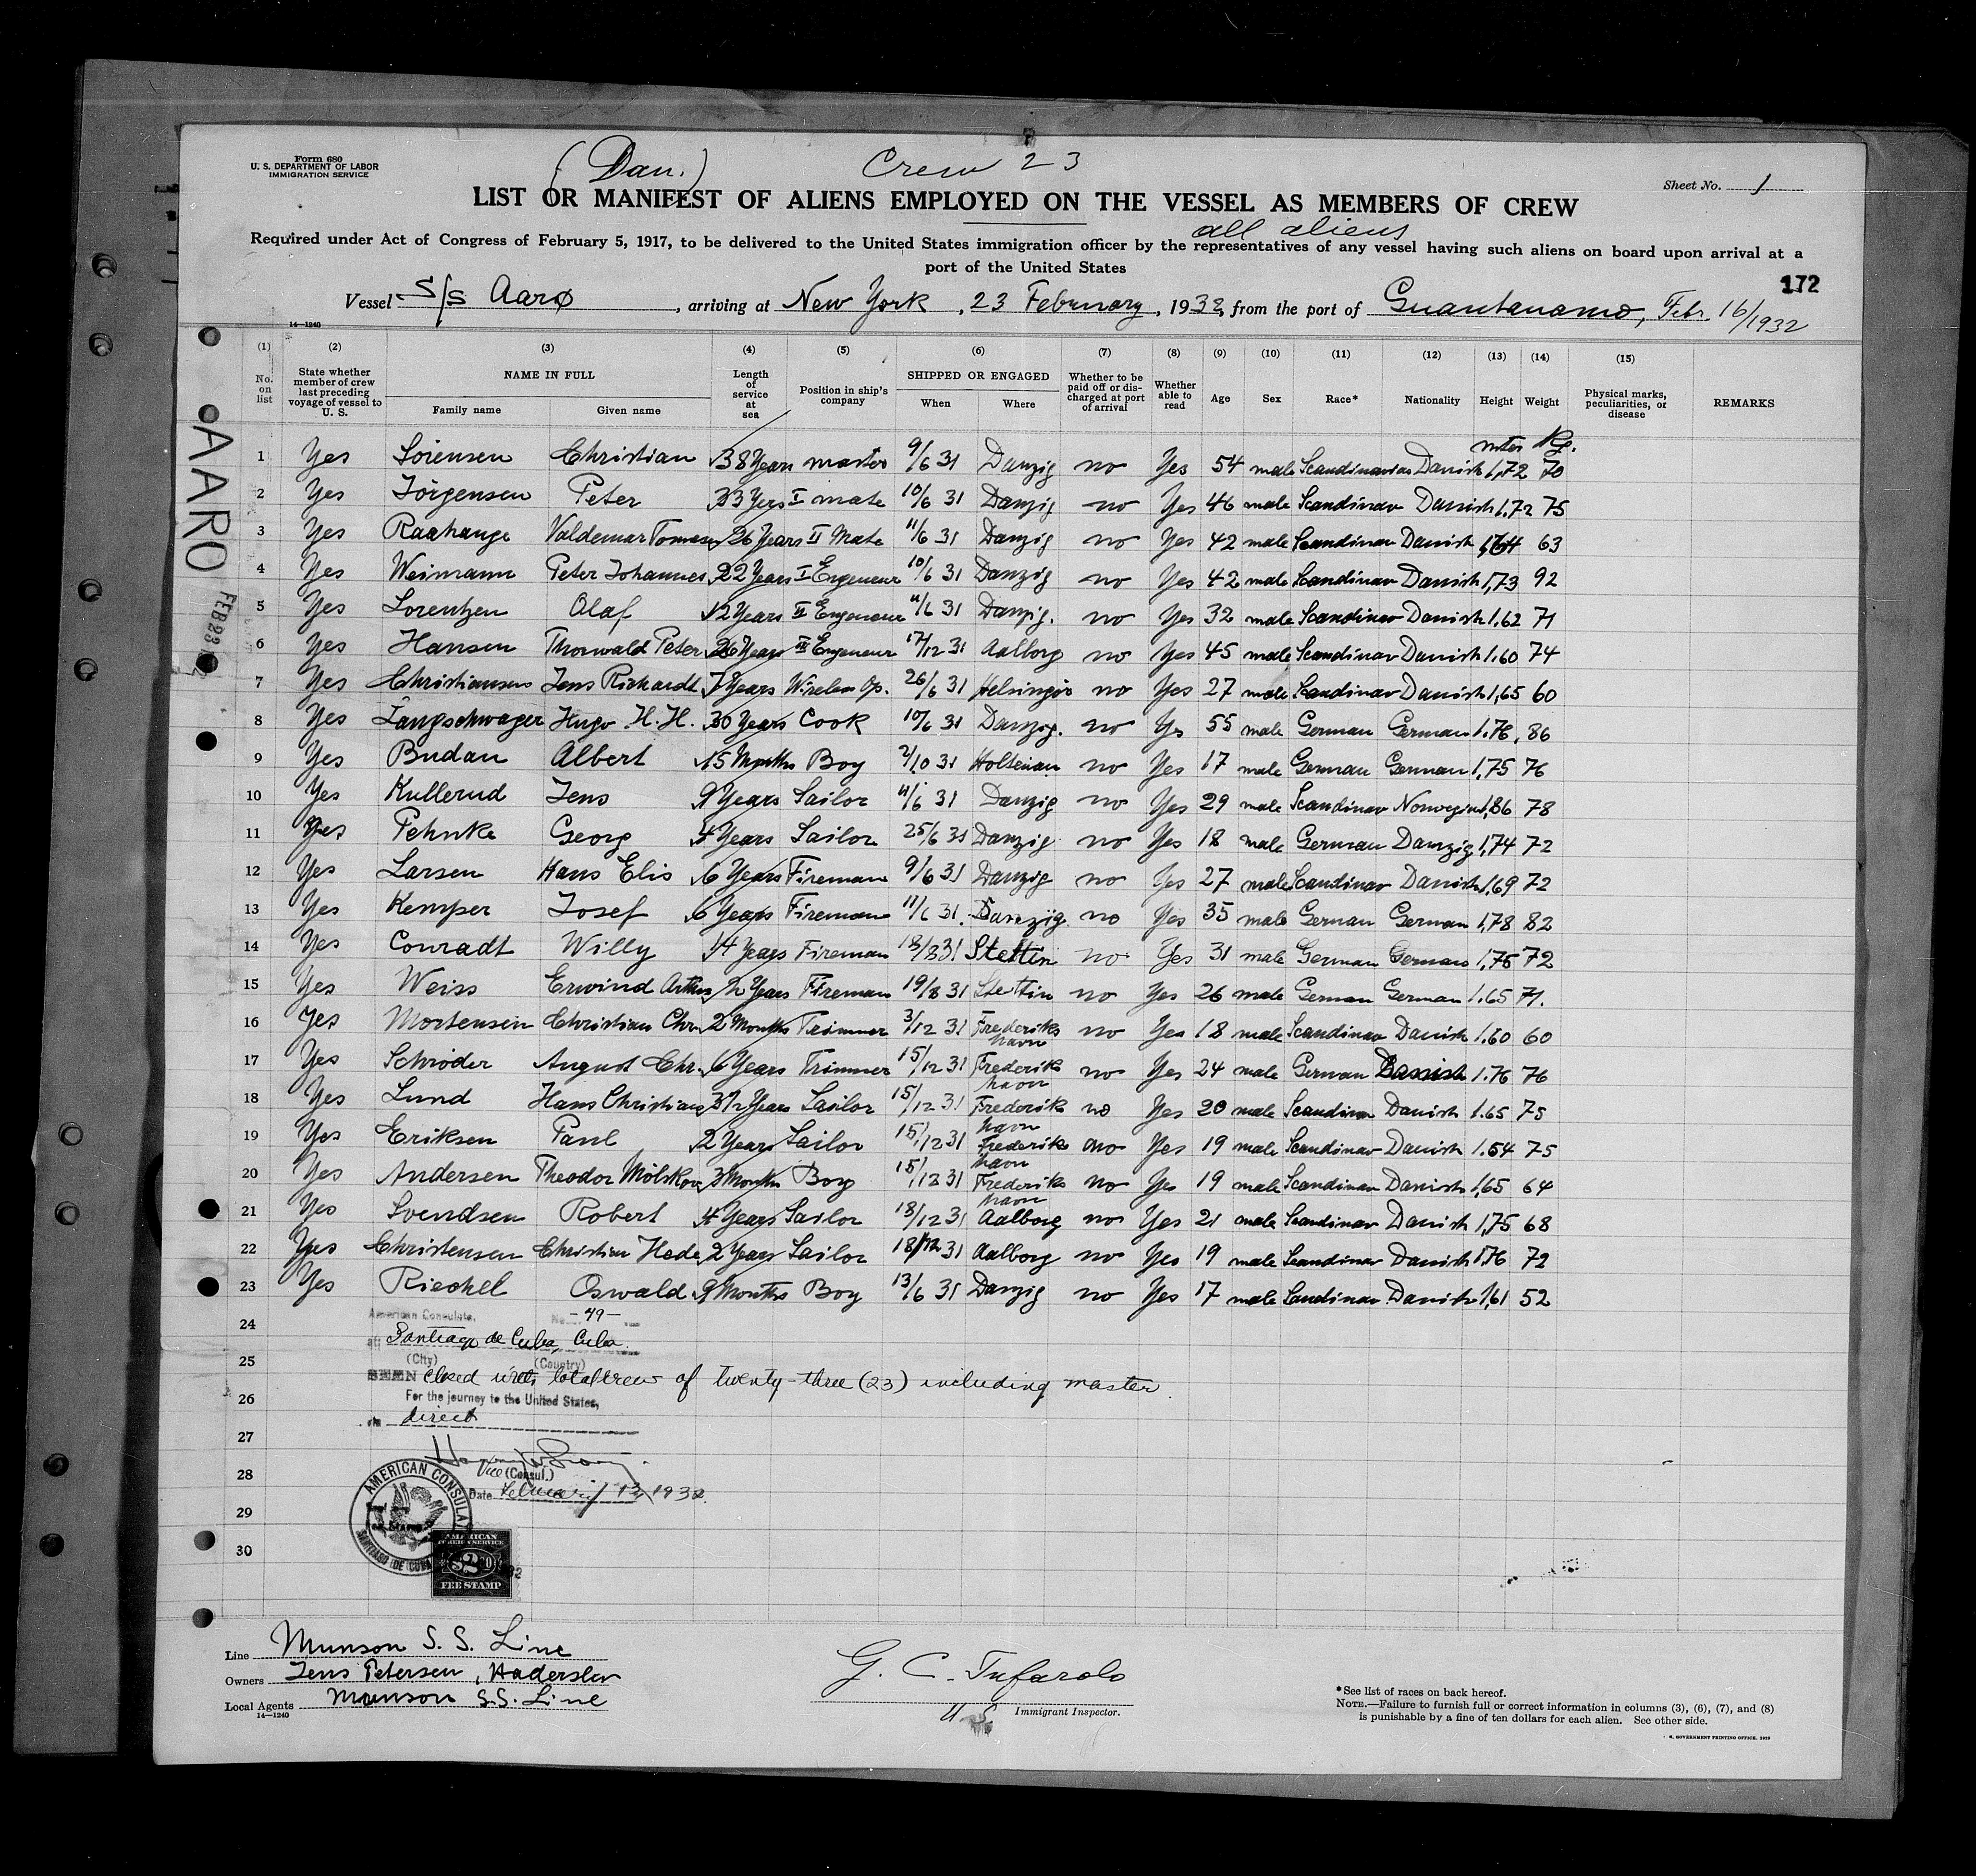 Form 680
U. S. DEPARTMENT OF LABOR
IMMIGRATION SERVICE
(Dan.)
Crew 23
Sheet No. 1
LIST OR MANIFEST OF ALIENS EMPLOYED ON THE VESSEL AS MEMBERS OF CREW
all aliens
Required under Act of Congress of February 5, 1917, to be delivered to the United States immigration officer by the representatives of any vessel having such aliens on board upon arrival at a
port of the United States
172
Vessel S/S Aarø, arriving at New York, 23 February, 1932, from the port of Guantanamo, Febr. 16/1932
14—1240
(1) (2) (3) (4) (5) (6) (7) (8) (9) (10) (11) (12) (13) (14) (15)
No. on list State whether member of crew last preceding voyage of vessel to U. S. NAME IN FULL Family name Given name Length of service at sea Position in ship's company SHIPPED OR ENGAGED When Where Whether to be paid off or discharged at port of arrival Whether able to read Age Sex Race* Nationality Height Weight Physical marks, peculiarities, or disease REMARKS
mtrs Kg.
1 Yes Sörensen Christian 38 Years master 9/6 31 Danzig no Yes 54 male Scandinavian Danish 1,72 70
2 Yes Jörgensen Peter 33 Yers I mate 10/6 31 Danzig no Yes 46 male Scandinav Danish 1,72 75
3 Yes Raahauge Valdemar Tomasen 26 Years II Mate 11/6 31 Danzig no Yes 42 male Scandinav Danish 1,64 63
4 Yes Weimann Peter Johannes 22 Years I Engeneur 10/6 31 Danzig no Yes 42 male Scandinav Danish 1,73 92
5 Yes Lorentzen Olaf 12 Years II Engeneur 11/6 31 Danzig. no Yes 32 male Scandinav Danish 1.62 71
6 Yes Hansen Thorwald Peter 26 Years III Engeneur 17/12 31 Aalborg no Yes 45 male Scandinav Danish 1.60 74
7 Yes Christiansen Jens Richardt 7 Years Wireless Op. 26/6 31 Helsingör no Yes 27 male Scandinav Danish 1,65 60
8 Yes Langschwager Hugo H. H. 30 Years Cook 10/6 31 Danzig. no Yes 55 male German German 1.76, 86
9 Yes Budan Albert 15 Months Boy 2/10 31 Holtenau no Yes 17 male German German 1,75 76
10 Yes Kullerud Jens 9 Years Sailor 11/6 31 Danzig no Yes 29 male Scandinav Norwegian 1,86 78
11 Yes Pehnke Georg 4 Years Sailor 25/6 31 Danzig no Yes 18 male German Danzig 1,74 72
12 Yes Larsen Hans Elis 6 Years Fireman 9/6 31 Danzig no Yes 27 male Scandinav Danish 1,69 72
13 Yes Kemper Josef 6 Years Fireman 11/6 31. Danzig no Yes 35 male German German 1,78 82
14 Yes Conradt Willy 14 Years Fireman 18/8 31 Stettin no Yes 31 male German German 1,76 72
15 Yes Weiss Erwind Arthur 2 Years Fireman 19/8 31 Stettin no Yes 26 male German German 1.65 71.
16 Yes Mortensen Christian Chr. 2 Months Trimmer 3/12 31 Frederikshavn no Yes 18 male Scandinav Danish 1.60 60
17 Yes Schröder August Chr. 6 Years Trimmer 15/12 31 Frederikshavn no Yes 24 male German Danish 1.76 76
18 Yes Lund Hans Christian 3 1/2 Years Sailor 15/12 31 Frederikshavn no Yes 20 male Scandinav Danish 1.65 75
19 Yes Eriksen Paul 2 Years Sailor 15/12 31 Frederikshavn no Yes 19 male Scandinav Danish 1.64 75
20 Yes Andersen Theodor Mölskov 3 Months Boy 15/12 31 Frederikshavn no Yes 19 male Scandinav Danish 1,65 64
21 Yes Svendsen Robert 4 Years Sailor 18/12 31 Aalborg no Yes 21 male Scandinav Danish 1,75 68
22 Yes Christensen Christian Hede 2 Years Sailor 18/12 31 Aalborg no Yes 19 male Scandinav Danish 1,76 72
23 Yes Riechel Oswald 9 Months Boy 13/6 31 Danzig no Yes 17 male Scandinav Danish 1,61 52
24
25
26
27
28
29
30
American Consulate, No. -49-
at Santiago de Cuba, Cuba.
(City) (Country)
SEEN closed with total crew of twenty-three (23) including master.
For the journey to the United States,
via direct
Vice (Consul.)
Date February 13, 1932.
AMERICAN CONSULATE
SANTIAGO DE CUBA
AMERICAN
FOREIGN SERVICE
$2
FEE STAMP
AARO
FEB 23
Line Munson S. S. Line
Owners Jens Petersen, Haderslev
Local Agents Munson S.S. Line
14—1240
G. C. Tufarolo
U S. Immigrant Inspector.
*See list of races on back hereof.
NOTE.—Failure to furnish full or correct information in columns (3), (6), (7), and (8)
is punishable by a fine of ten dollars for each alien. See other side.
GOVERNMENT PRINTING OFFICE.